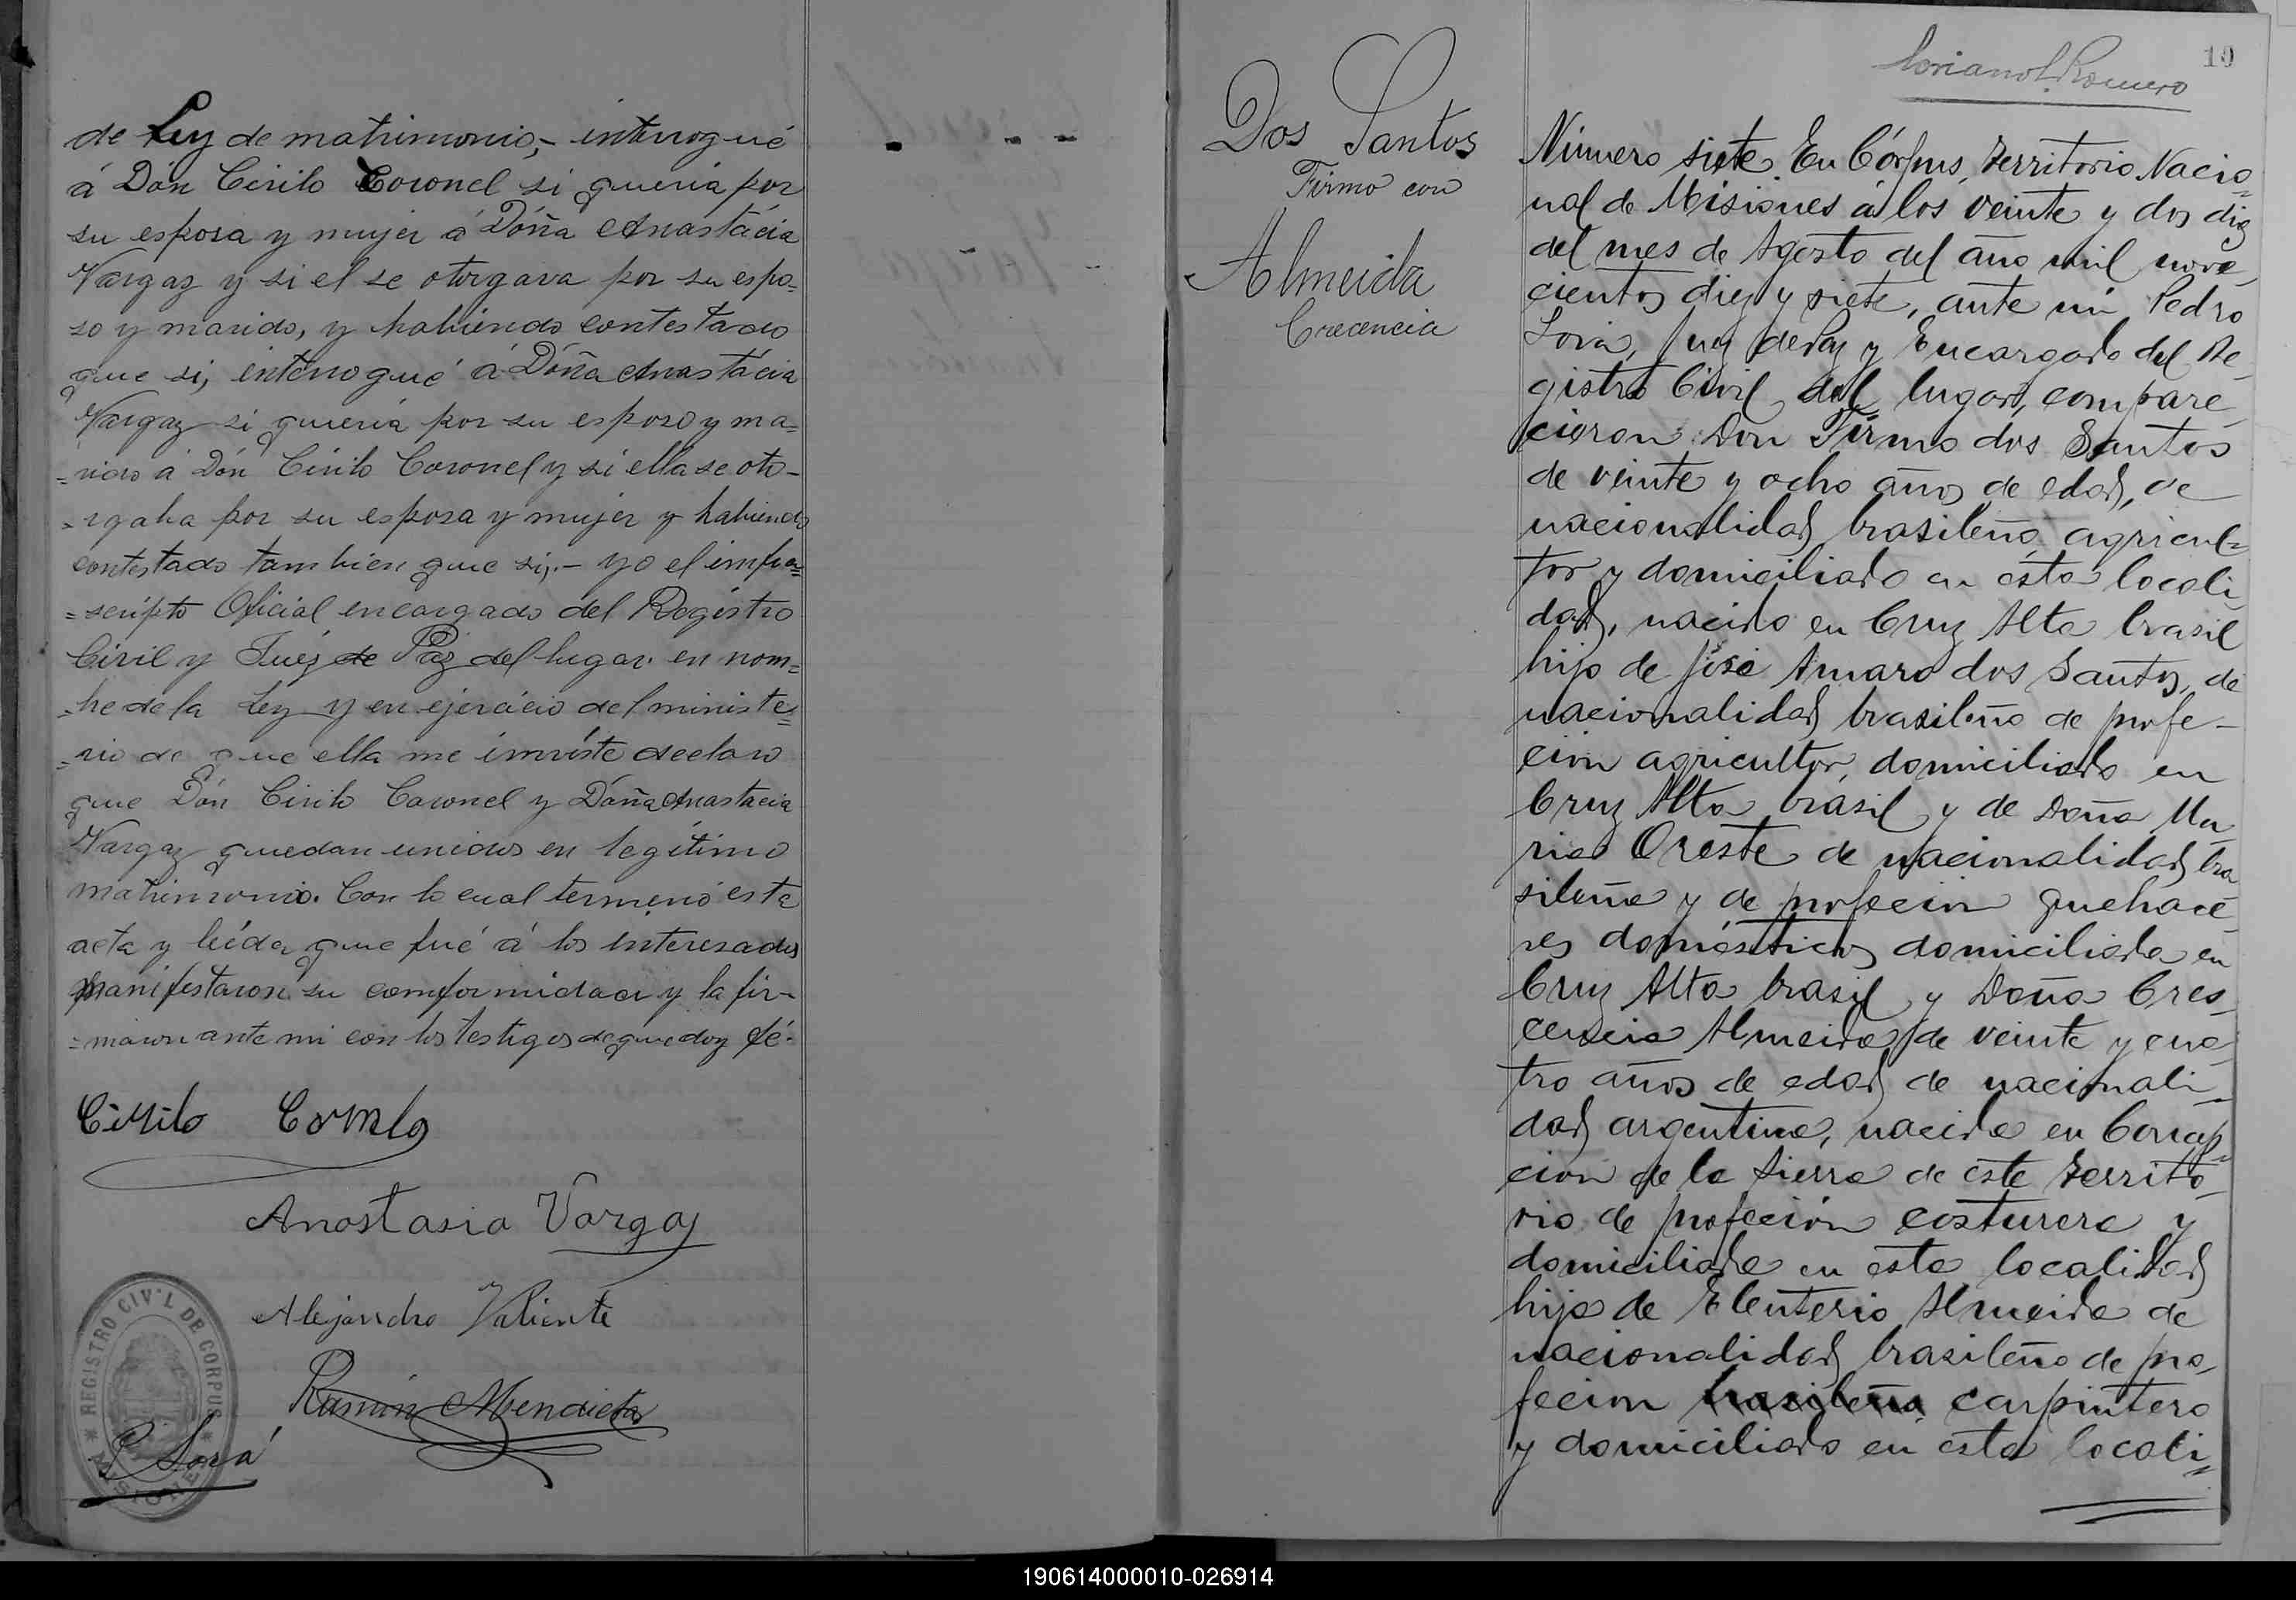 de Ley de matrimonio,- interrogué
á Dón Cirilo Coronel si queria por
su esposa y mujer á Dóña Anastácia
Vargaz y si el se otorgava por su espo=
so y marido, y habiendo contestado
que si, interrogué á Dóña Anastácia
Vargaz si queria por su esposo y ma=
=rido á Dón Cirilo Coronel y si ella se oto-
-rgaba por su esposa y mujer y habiendo
contestado tambien que si,.- yo el infra=
=scripto Oficial encargado del Registro
Civil y Juéz de Páz del lugar. en nom=
=bre de la Ley y en ejercicio del ministe=
=rio de que ella me inviste declaro
que Dón Cirilo Coronel y Dóña Anastacia
Vargaz quedan unidos en legitimo
matrimonio. Con lo cual termino esta
acta y leida que fué á los interesados
manifestaron su comformidad y la fir-
=maron ante mi con los testigos de que doy fé-
Cirilo
Anastasia Vargas
Alejandro Valiente
Ramón Mendieta
REGISTRO CIVIL DE CORPUS
MISIONES
P Soria
Dos Santos
Firmo con
Almeida
Crecencia
Romero
19
Número siete. En Córpus, Territorio Nacio=
nal de Misiones á los veinte y dos dias
del mes de Agosto del año mil nove
cientos diez y siete, ante mi Pedro
Soria, Juez de Paz y Encargado del Re
gistro Civil del lugar, compare
cieron: Don Firmo dos Santos
de veinte y ocho años de edad, de
nacionalidad brasileña agricul=
tor y domiciliado en esta locali
dad, nacido en Cruz Alta brasil
hijo de José Amaro dos Santos, de
nacionalidad brasileño de profe-
cion agricultor, domiciliado en
Cruz Alta brasil y de Doña Ma
ria Oreste de nacionalidad bra
sileña y de profecion quehace
res domésticos domiciliada en
Cruz Alta brasil y Doña Cres
cencia Almeida de veinte y cua
tro años de edad de nacionali
dad argentina, nacida en Concep=
cion de la Sierra de este Territo
rio de profeción costurera y
domiciliada en esta localidad
hija de Eleuterio Almeida de
nacionalidad brasileño de pro
fecion brasileña carpintero
y domiciliado en esta locali=
190614000010-026914